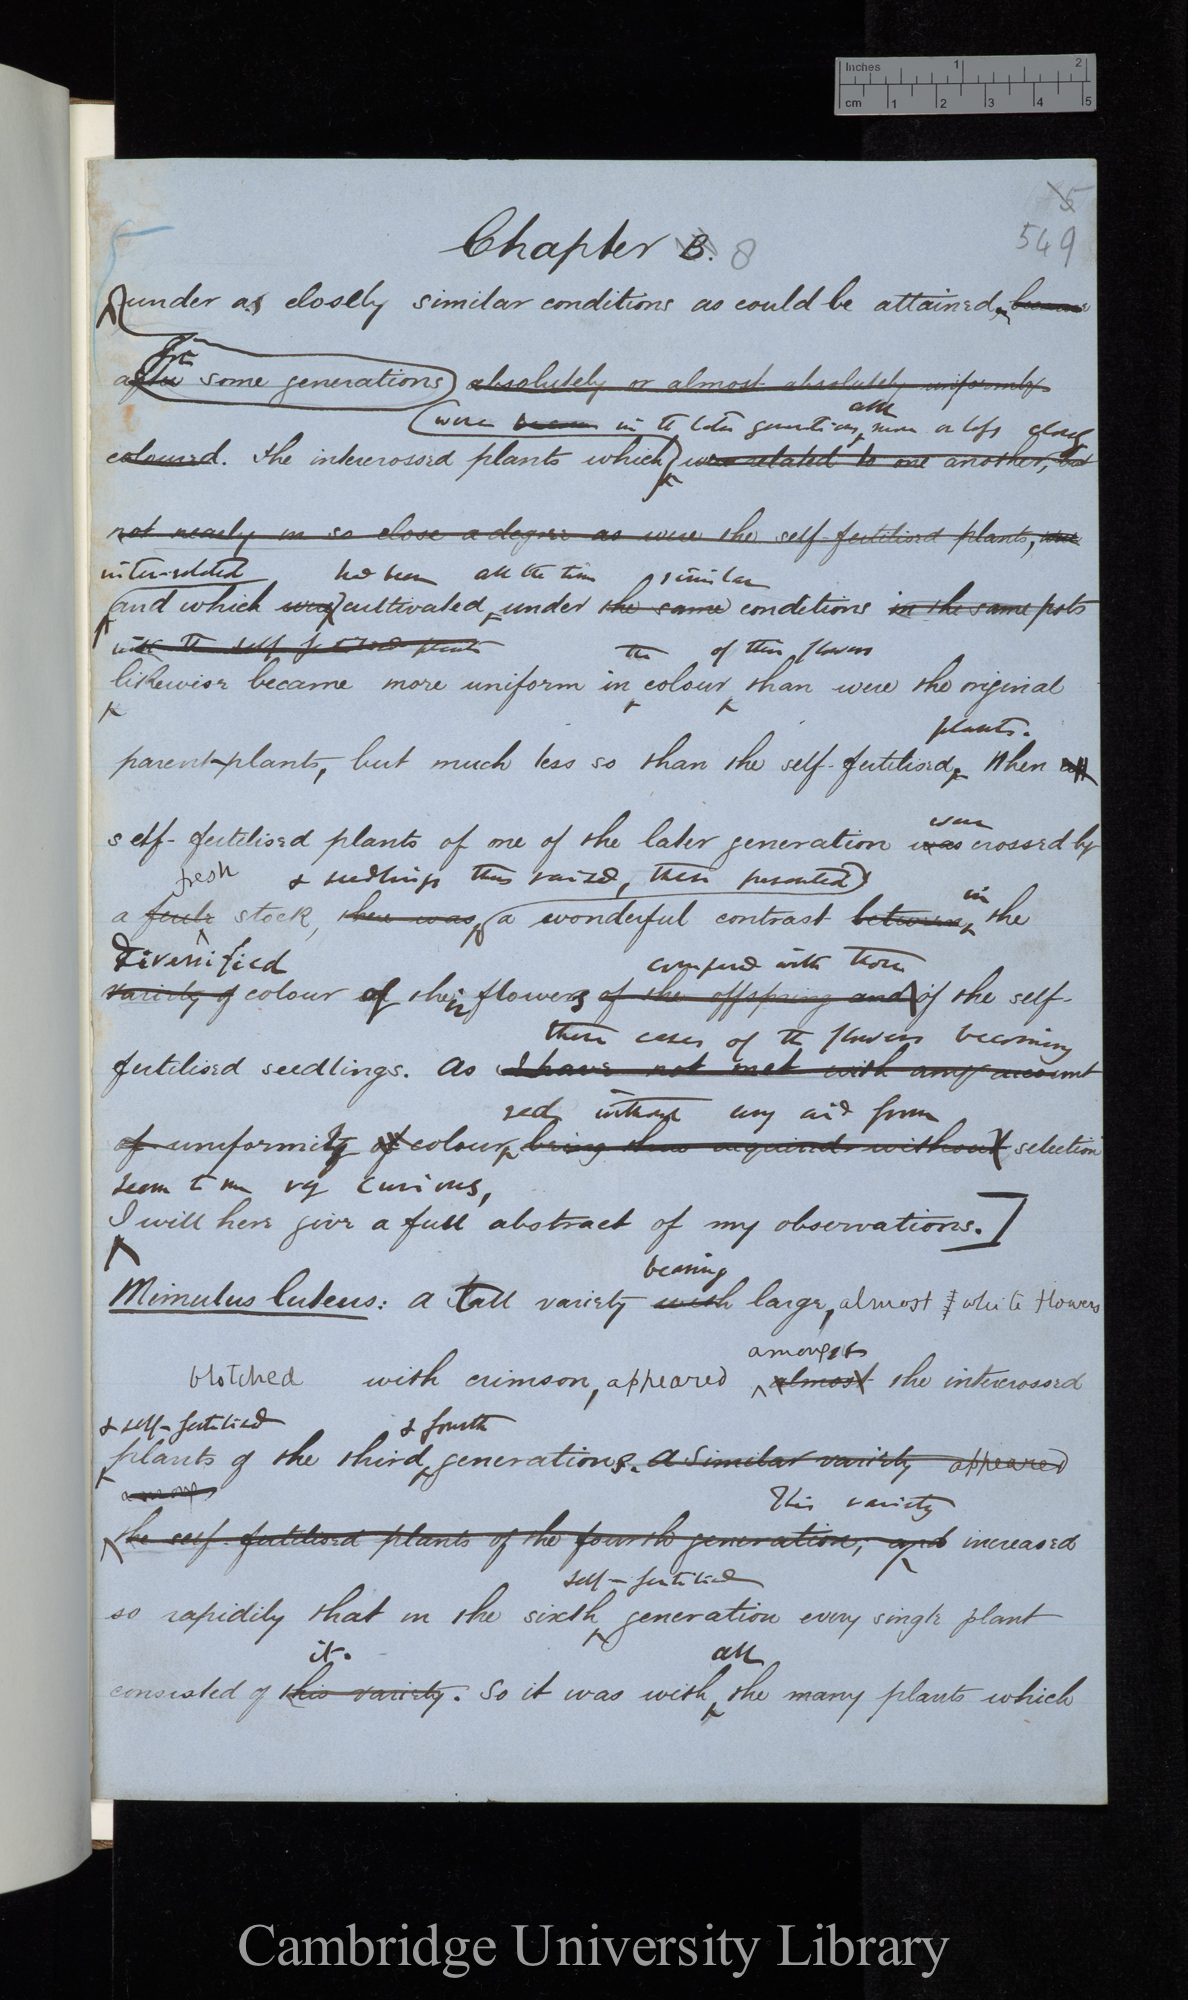 Inches 1 2
cm 1 2 3 4 5
5
5
549
Chapter B. 8
under as closely similar conditions as could be attained, became
for
after some generations absolutely or almost absolutely uniformly
were become in the later generations all more or less closely
coloured. The intercrossed plants which were related to one another, but
not nearly in so close a degree as were the self-fertilised plants, were
inter-related had been all the time similar
and which was cultivated under the same conditions in the same pots
with the self fertilised plants the of their flowers
likewise became more uniform in colour than were the original
plants.
parent-plants, but much less so than the self-fertilised. When all
were
self-fertilised plants of one of the later generation was crossed by
fresh & seedlings thus raised, these presented
a stock, there was a wonderful contrast between the
in
diversified compared with those
variety of colour of their flowers of the offspring and of the self-
these cases of the flowers becoming
fertilised seedlings. As I have not met with any account
red without any aid from
of uniformity of colour, being thus acquired without selection
seem to me very curious,
I will here give a full abstract of my observations.]
bearing
Mimulus luteus: A tall variety with large, almost white flowers
amongst
blotched with crimson, appeared almost the intercrossed
& self-fertilised & fourth
plants of the third generations. A similar variety appeared
among
This variety
the self-fertilised plants of the fourth generation, and increased
self-fertilised
so rapidily that in the sixth generation every single plant
it. all
consisted of this variety. So it was with the many plants which
Cambridge University Library